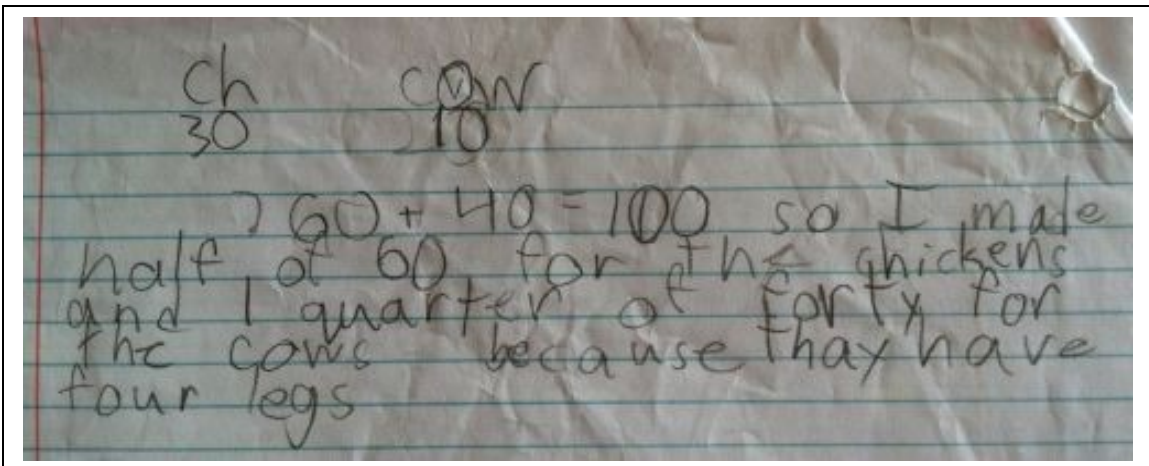 Ch cow
30 10
60 + 40 = 100 so I made
half of 60 for the chickens
and 1 quarter of forty for
the cows because thay have
four legs